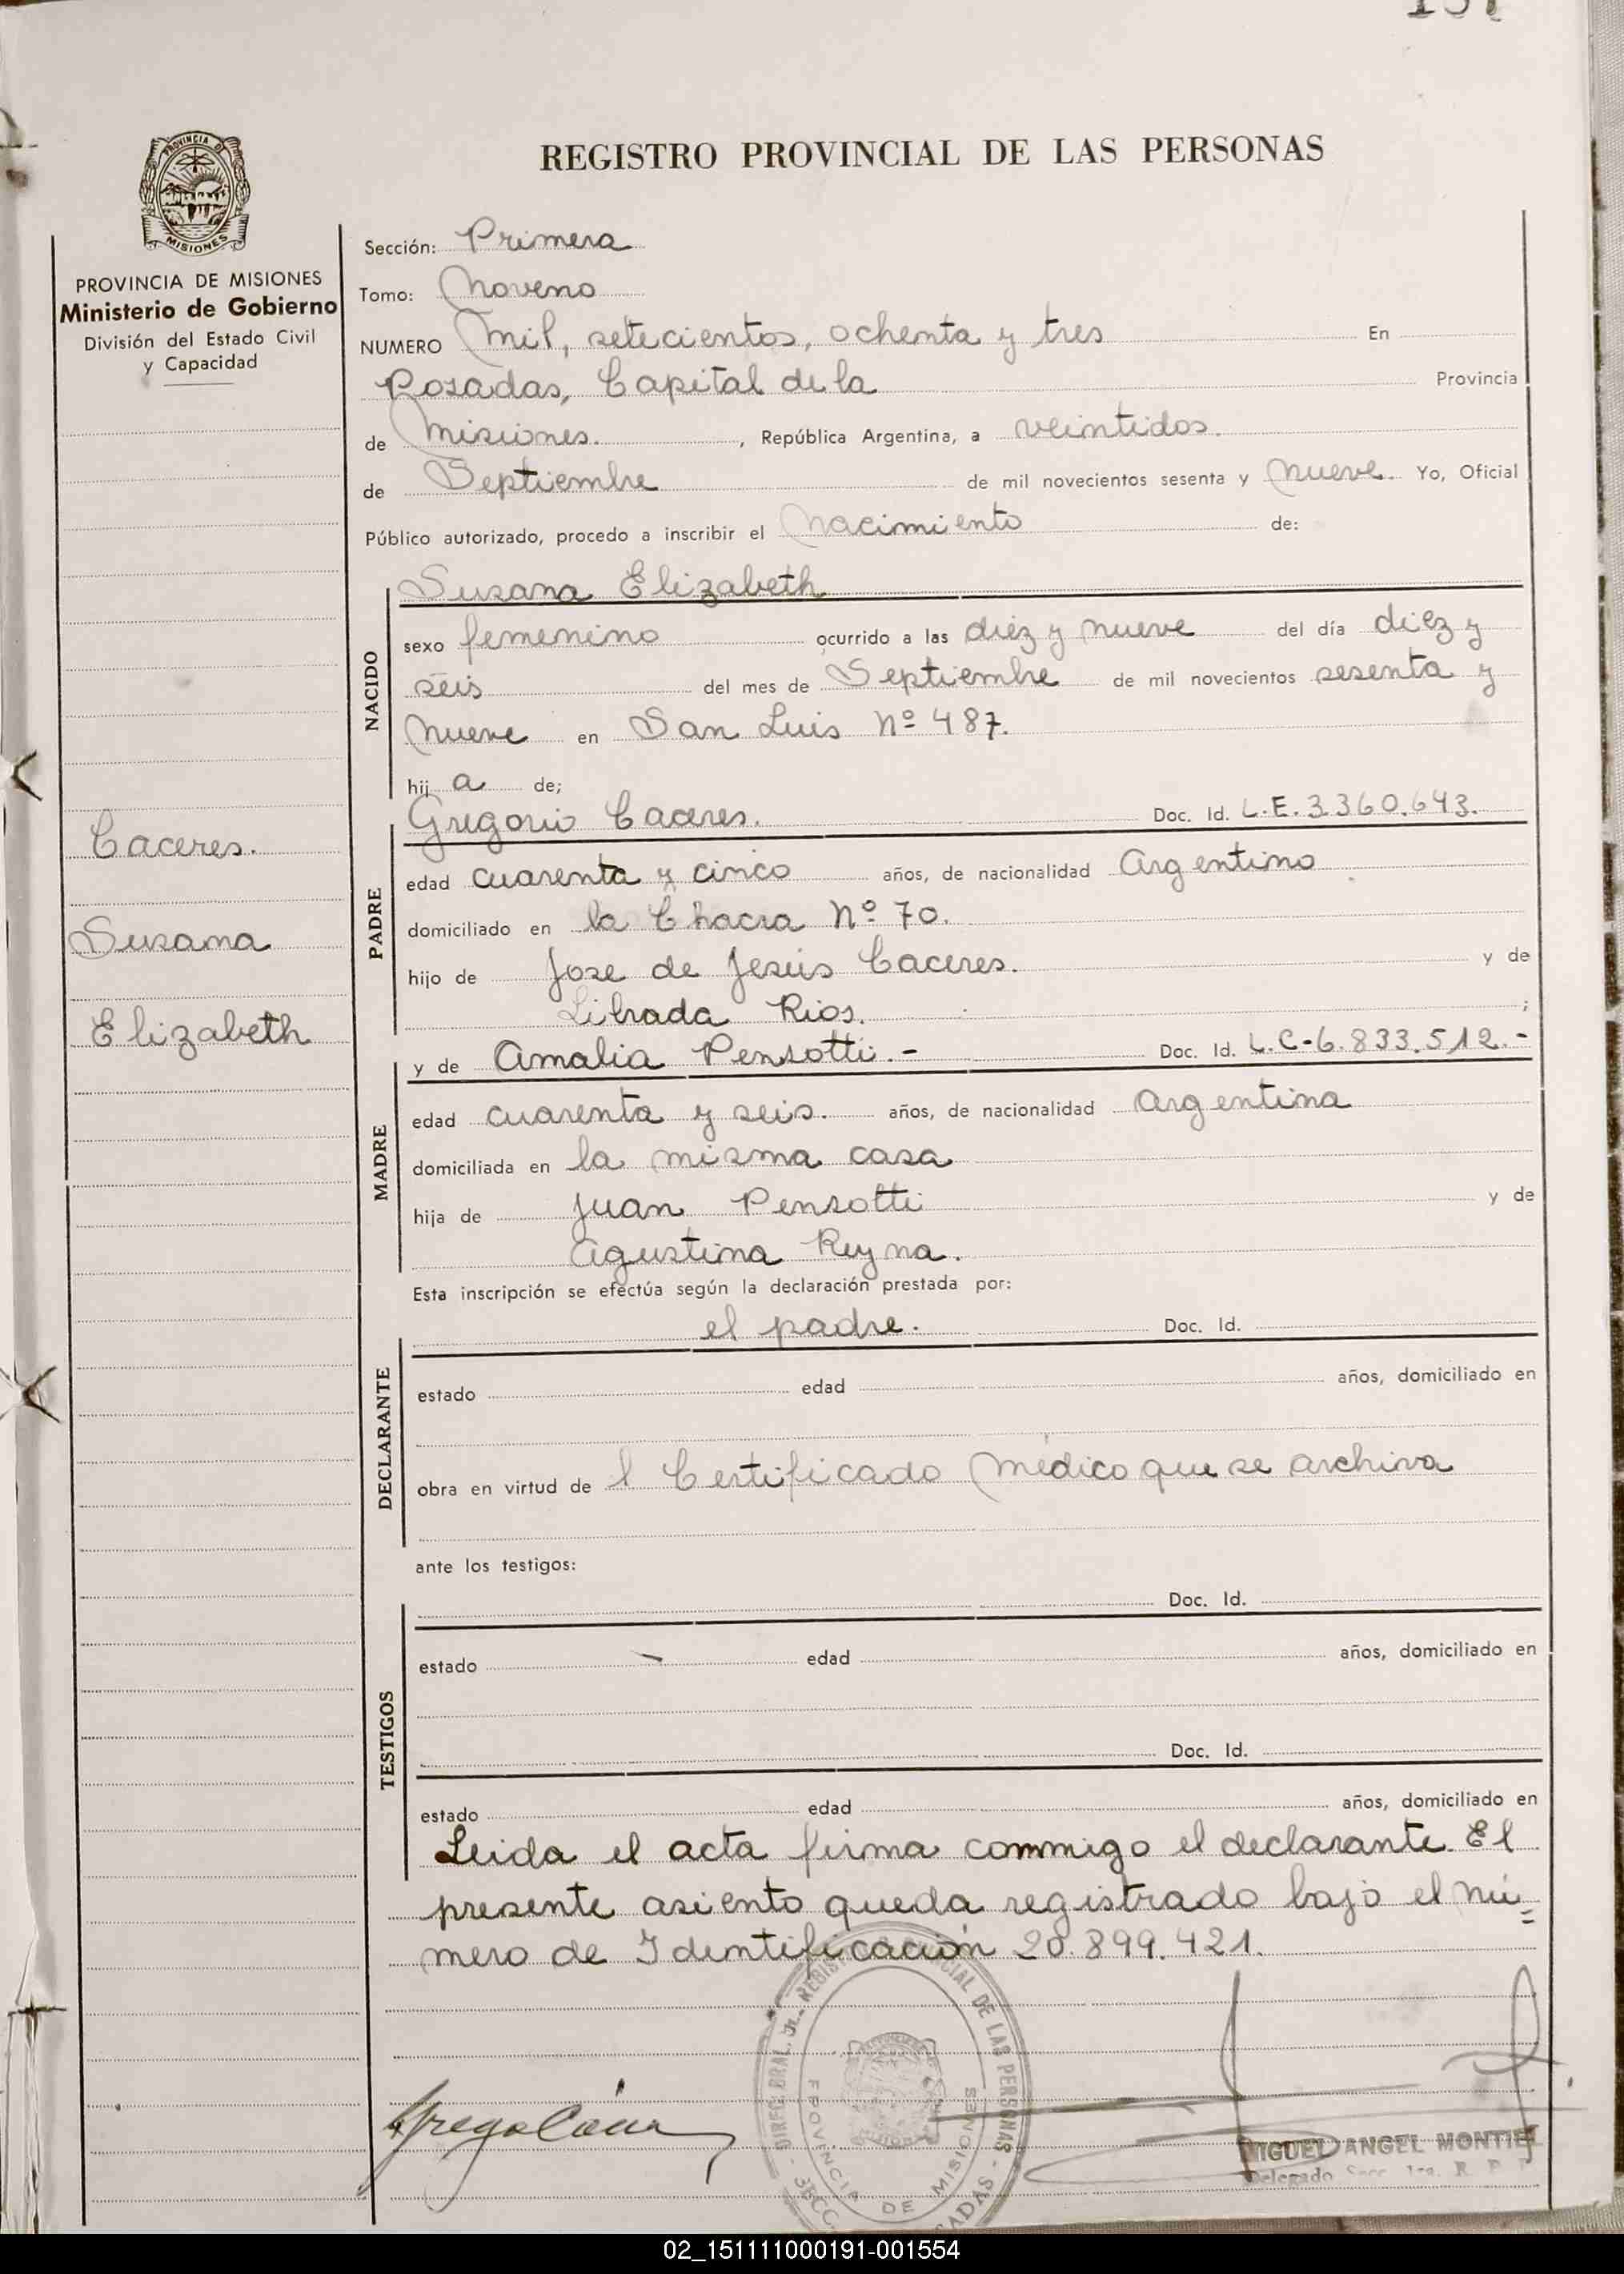 REGISTRO PROVINCIAL DE LAS PERSONAS
PROVINCIA DE
MISIONES
PROVINCIA DE MISIONES
Ministerio de Gobierno
División del Estado Civil
y Capacidad
Caceres.
Susana
Elizabeth
Sección: Primera
Tomo: Noveno
NUMERO Mil, setecientos, ochenta y tres En
Posadas, Capital de la Provincia
de Misiones. , República Argentina, a veintidos.
de Septiembre de mil novecientos sesenta y nueve. Yo, Oficial
Público autorizado, procedo a inscribir el Nacimiento de:
NACIDO
Susana Elizabeth
sexo femenino ocurrido a las diez y nueve del día diez y
seis del mes de Septiembre de mil novecientos sesenta y
nueve en San Luis Nº 487.
hij a de;
PADRE
Gregorio Caceres. Doc. Id. L.E. 3.360.643.
edad cuarenta y cinco años, de nacionalidad Argentino
domiciliado en la Chacra Nº 70.
hijo de Jose de Jesús Caceres. y de
Librada Rios. ;
MADRE
y de Amalia Pensotti.- Doc. Id. L.C-6.833.512.-
edad cuarenta y seis. años, de nacionalidad Argentina
domiciliada en la misma casa
hija de Juan Pensotti y de
Agustina Reyna.
Esta inscripción se efectúa según la declaración prestada por:
DECLARANTE
el padre. Doc. Id.
estado edad años, domiciliado en
obra en virtud de l Certificado Médico que se archiva
ante los testigos:
TESTIGOS
Doc. Id.
estado edad años, domiciliado en
Doc. Id.
estado edad años, domiciliado en
Leida el acta firma commigo el declarante. El
presente asiento queda registrado bajo el nú=
mero de Identificación 20.899.421.
PROVINCIA DE MISIONES
MIGUEL ANGEL MONTIEL
Delegado Secc. 1ra. R. P. P.
02_151111000191-001554